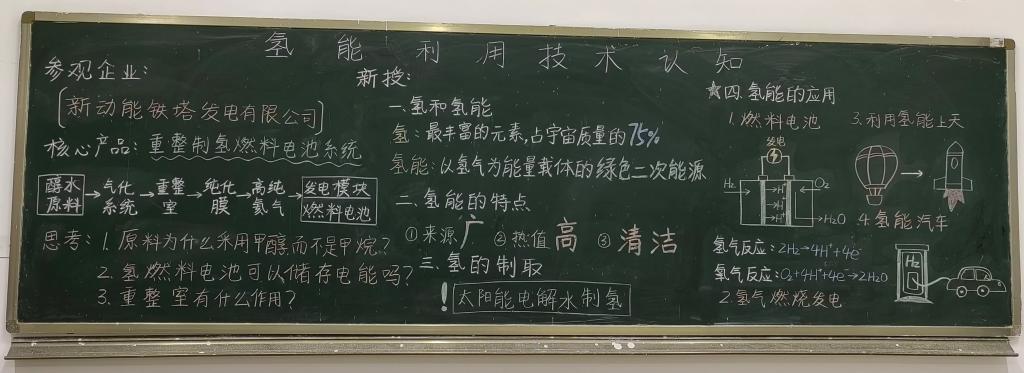 氢能利用技术认知
参观企业:
新动能铁塔发电有限公司
核心产品: 重整制氢燃料电池系统
醇水原料→气化系统→重整室→纯化膜→高纯氦气→发电模块 燃料电池
思考: 1. 原料为什么采用甲醇而不是甲烷?
2. 氢燃料电池可以储存电能吗?
3. 重整室有什么作用?
新授:
一.氢和氢能
氢: 最丰富的元素,占宇宙质量的75%
氢能: 以氢气为能量载体的绿色二次能源
二.氢能的特点
①来源广 ②热值高 ③清洁
三.氢的制取
! 太阳能电解水制氢
★四.氢能的应用
1.燃料电池
发电
H₂ O₂
H⁺
H⁺
H⁺
H₂O
氢气反应: 2H₂→4H⁺+4e⁻
氧气反应: O₂+4H⁺+4e⁻→2H₂O
2.氢气燃烧发电
3.利用氢能上天
4.氢能汽车
H₂